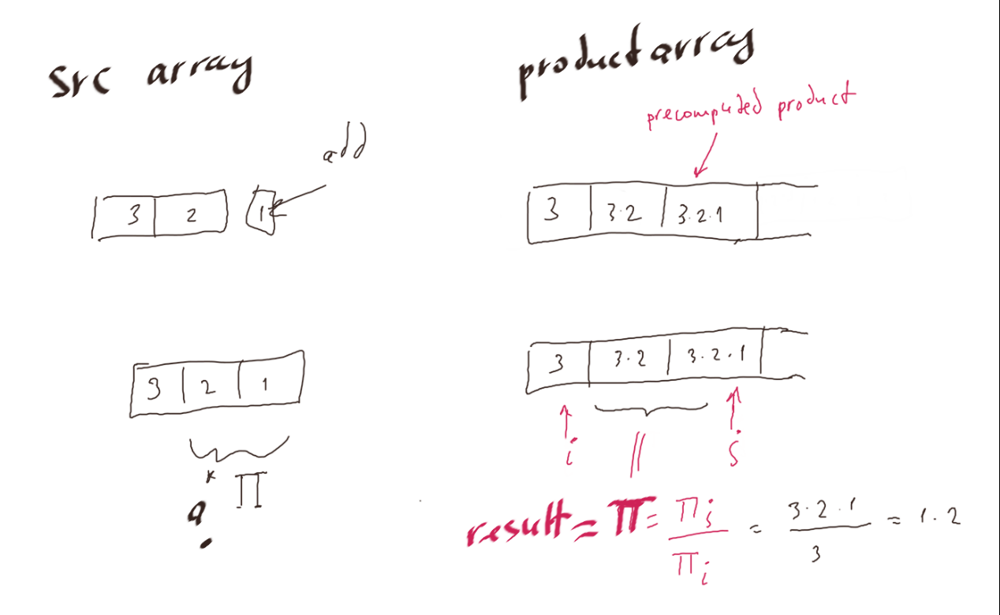 src array
product array
precomputed product
add
3 2 1
3 3·2 3·2·1
3 2 1
3 3·2 3·2·1
i j
* π
?
result = π = πj / πi = 3·2·1 / 3 = 1·2